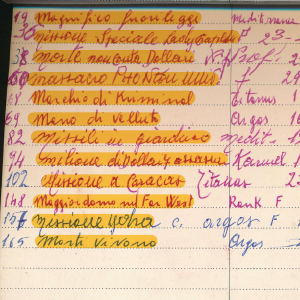 19 Magnifico fuorilegge Mediterranea
30 Missione Speciale Lady Chaplin F 23-
38 morte non conta Dollari Prof. 2
60 massacro F 2
68 Marchio di Kriminal Estensus 1
69 Mano di velluto Orgos 16
82 Missili in giardino medit. 1
94 milione di Dollari 7 assassini Karmel 1
102 Missione a Caracas Titanus 2
148 Maggiordomo nel Far West Rank F.
157 missione Goha c. argos F
165 Morti vivono Orgos